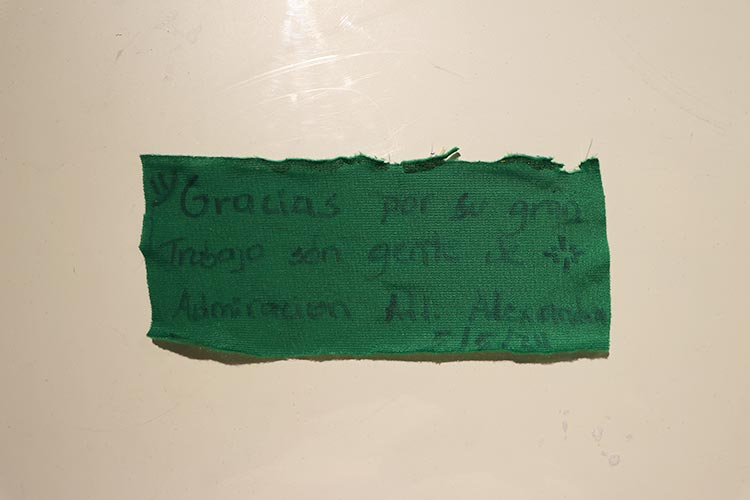 Gracias por su gran
Trabajo són gente de
Admiración Att. Alexandra
5/5/24